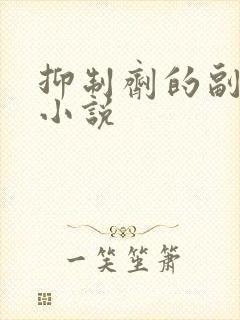 抑制剂的副
小说
一笑笙箫